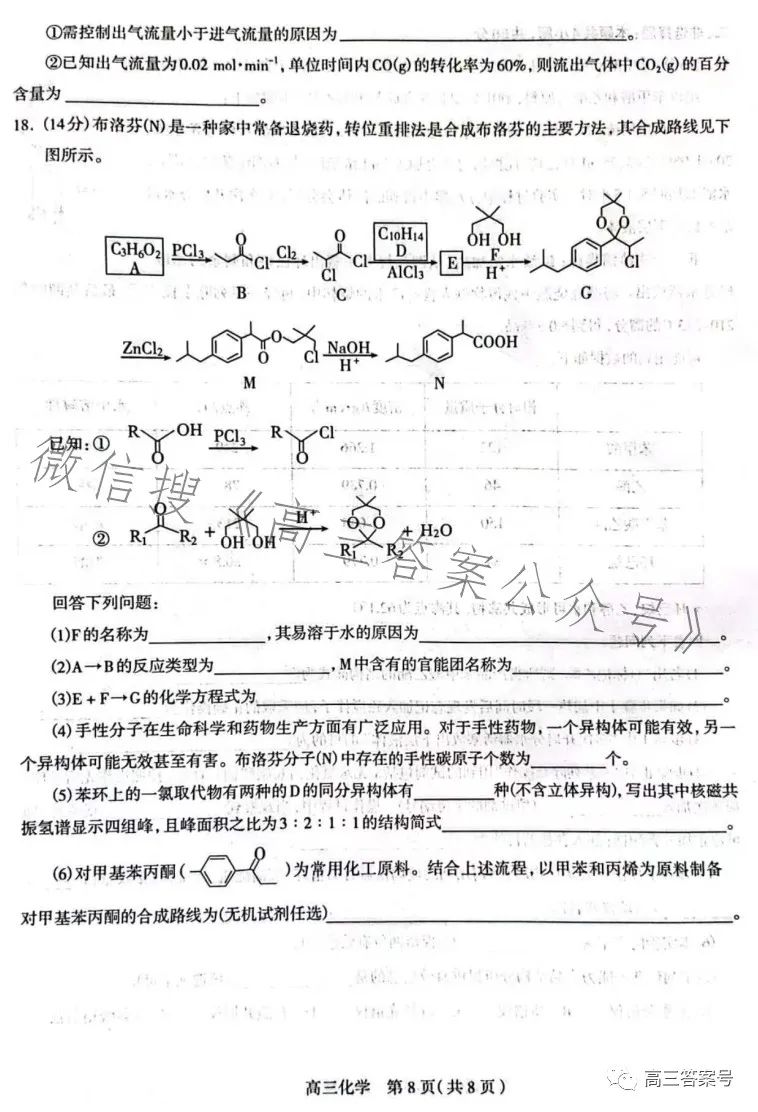 ①需控制出气流量小于进气流量的原因为。
②已知出气流量为0.02 mol·min⁻¹,单位时间内CO(g)的转化率为60%,则流出气体中CO₂(g)的百分
含量为。
18.(14分)布洛芬(N)是一种家中常备退烧药,转位重排法是合成布洛芬的主要方法,其合成路线见下
图所示。
C₃H₆O₂ A PCl₃ O Cl B Cl₂ O Cl Cl C C₁₀H₁₄ D AlCl₃ E OH OH F H⁺ O O Cl G
ZnCl₂ O O Cl M NaOH H⁺ COOH N
已知:① R OH O PCl₃ R Cl O
② O R₁ R₂ + OH OH H⁺ O O R₁ R₂ + H₂O
回答下列问题:
(1)F的名称为,其易溶于水的原因为。
(2)A→B的反应类型为,M中含有的官能团名称为。
(3)E+F→G的化学方程式为。
(4)手性分子在生命科学和药物生产方面有广泛应用。对于手性药物,一个异构体可能有效,另一
个异构体可能无效甚至有害。布洛芬分子(N)中存在的手性碳原子个数为个。
(5)苯环上的一氯取代物有两种的D的同分异构体有种(不含立体异构),写出其中核磁共
振氢谱显示四组峰,且峰面积之比为3:2:1:1的结构简式。
(6)对甲基苯丙酮( O )为常用化工原料。结合上述流程,以甲苯和丙烯为原料制备
对甲基苯丙酮的合成路线为(无机试剂任选)。
微信搜《高三答案公众号》
高三化学 第8页(共8页)
高三答案号